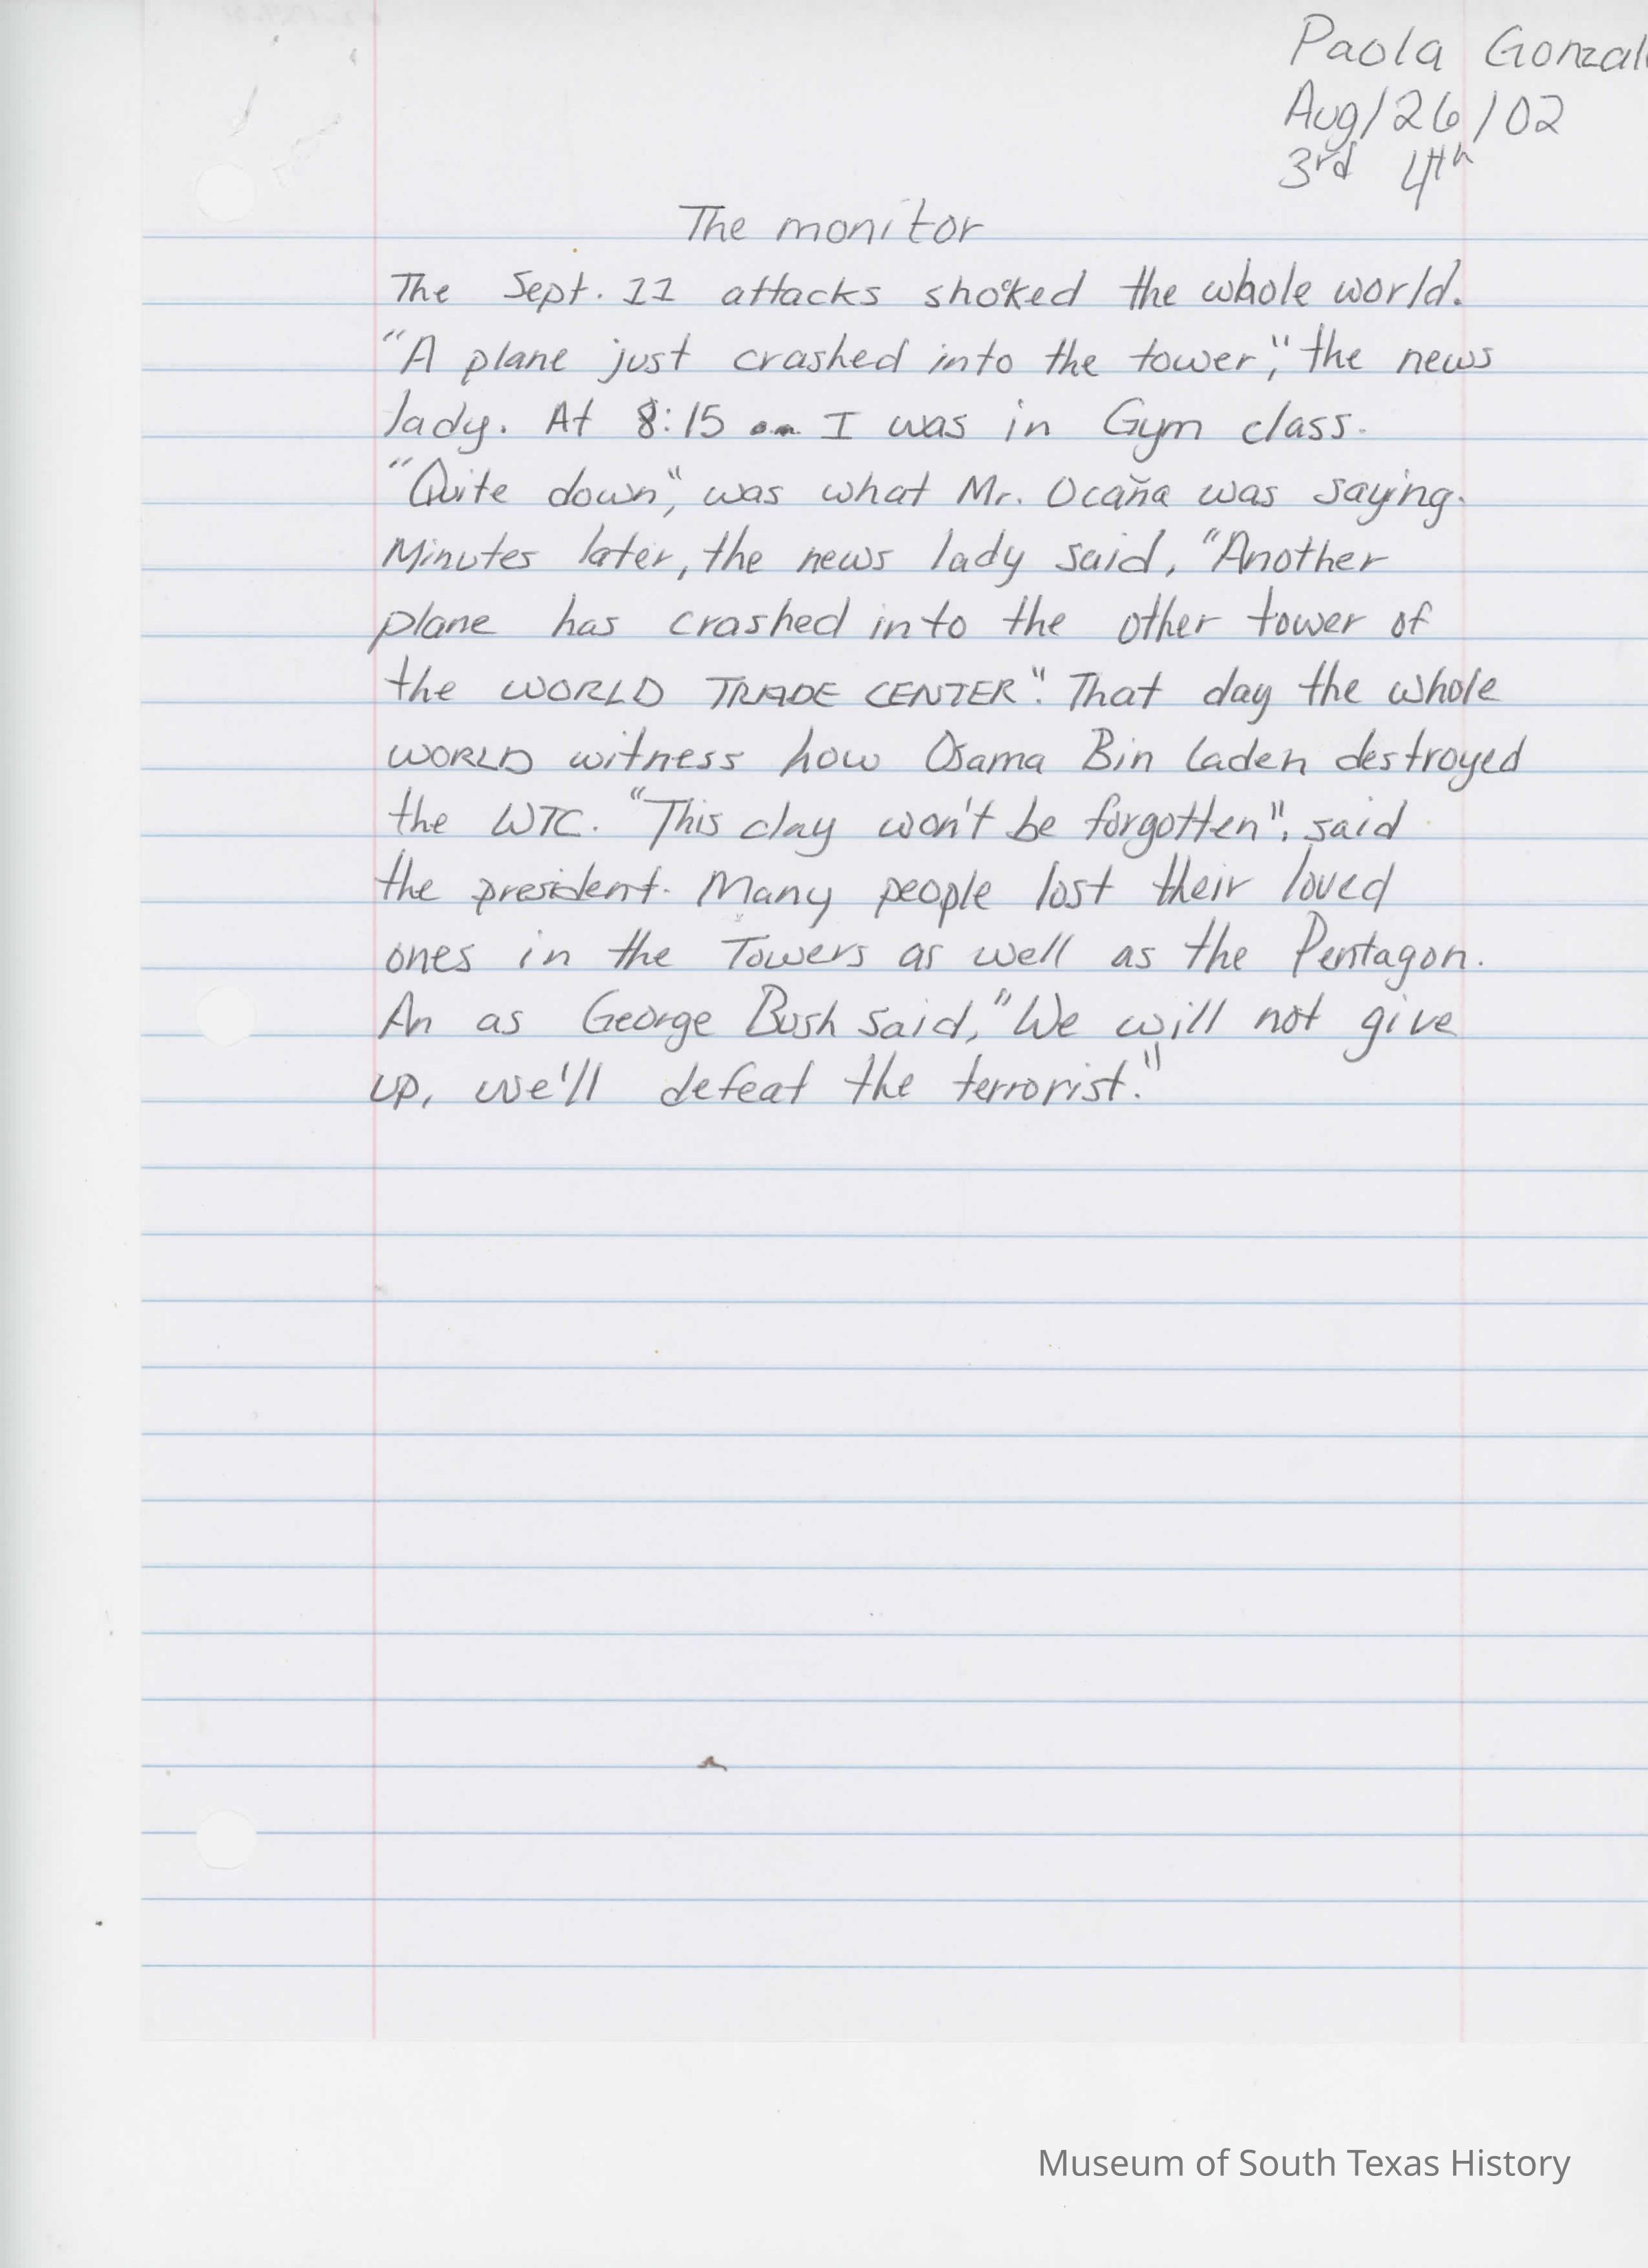 Paola Gonzal
Aug/26/02
3rd 4th
The monitor
The Sept. 11 attacks shoked the whole world.
"A plane just crashed into the tower," the news
lady. At 8:15 I was in Gym class.
"Quite down", was what Mr. Ocaña was saying.
Minutes later, the news lady said, "Another
plane has crashed into the other tower of
the WORLD TRADE CENTER". That day the whole
WORLD witness how Osama Bin Laden destroyed
the WTC. "This day won't be forgotten", said
the president. Many people lost their loved
ones in the Towers as well as the Pentagon.
An as George Bush said, "We will not give
up, we'll defeat the terrorist."
Museum of South Texas History